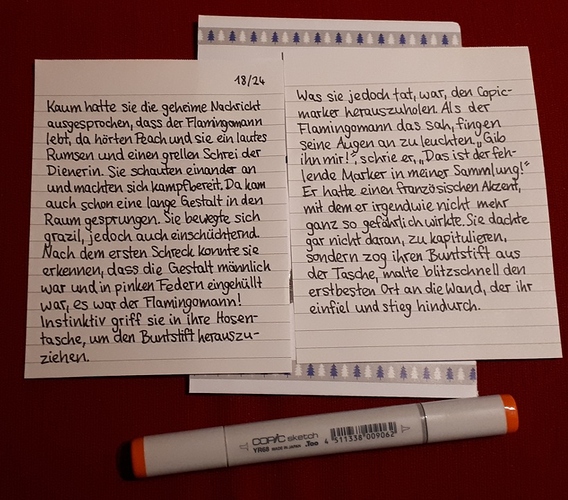 18/24
Kaum hatte sie die geheime Nachricht
ausgesprochen, dass der Flamingomann
lebt, da hörten Peach und sie ein lautes
Rumsen und einen grellen Schrei der
Dienerin. Sie schauten einander an
und machten sich kampfbereit. Da kam
auch schon eine lange Gestalt in den
Raum gesprungen. Sie bewegte sich
grazil, jedoch auch einschüchternd.
Nach dem ersten Schreck konnte sie
erkennen, dass die Gestalt männlich
war und in pinken Federn eingehüllt
war, es war der Flamingomann!
Instinktiv griff sie in ihre Hosen-
tasche, um den Buntstift herauszu-
ziehen.
Was sie jedoch tat, war, den Copic-
marker herauszuholen. Als der
Flamingomann das sah, fingen
seine Augen an zu leuchten. „Gib
ihn mir!", schrie er, „Das ist der feh-
lende Marker in meiner Sammlung!"
Er hatte einen französischen Akzent,
mit dem er irgendwie nicht mehr
ganz so gefährlich wirkte. Sie dachte
gar nicht daran, zu kapitulieren,
sondern zog ihren Buntstift aus
der Tasche, malte blitzschnell den
erstbesten Ort an die Wand, der ihr
einfiel und stieg hindurch.
COPIC sketch
YR68 MADE IN JAPAN .Too
4 511338 009062